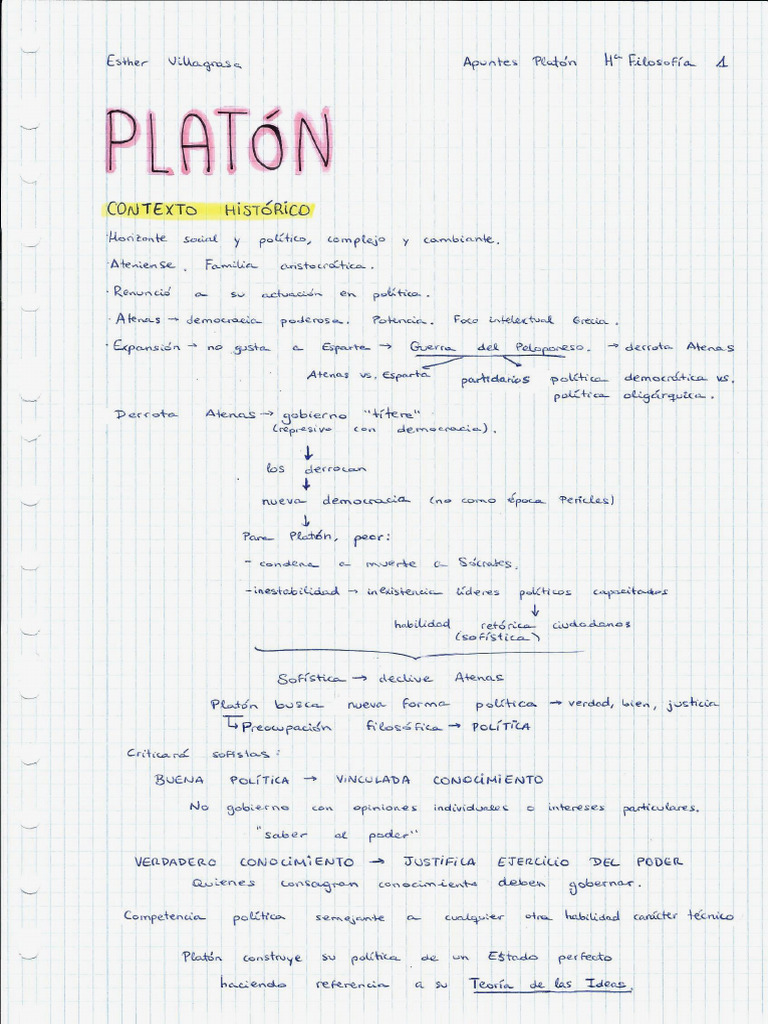 Esther Villagrasa
Apuntes Platón Hª Filosofía 1
PLATÓN
CONTEXTO HISTÓRICO
·Horizonte social y político, complejo y cambiante.
·Ateniense. Familia aristocrática.
·Renunció a su actuación en política.
·Atenas → democracia poderosa. Potencia. Foco intelectual Grecia.
·Expansión → no gusta a Esparta → Guerra del Peloponeso. → derrota Atenas
Atenas vs. Esparta
partidarios política democrática vs.
política oligárquica.
Derrota Atenas → gobierno "títere"
(represivo con democracia).
↓
los derrocan
↓
nueva democracia (no como época Pericles)
↓
Para Platón, peor:
- condena a muerte a Sócrates.
- inestabilidad → inexistencia líderes políticos capacitados
↓
habilidad retórica ciudadanos
(sofística)
Sofística → declive Atenas
Platón busca nueva forma política → verdad, bien, justicia
↳ Preocupación filosófica → POLÍTICA
Criticará sofistas:
BUENA POLÍTICA → VINCULADA CONOCIMIENTO
No gobierno con opiniones individuales o intereses particulares.
"saber al poder"
VERDADERO CONOCIMIENTO → JUSTIFICA EJERCICIO DEL PODER
Quienes consagran conocimiento deben gobernar.
Competencia política semejante a cualquier otra habilidad carácter técnico
Platón construye su política de un Estado perfecto
haciendo referencia a su Teoría de las Ideas.